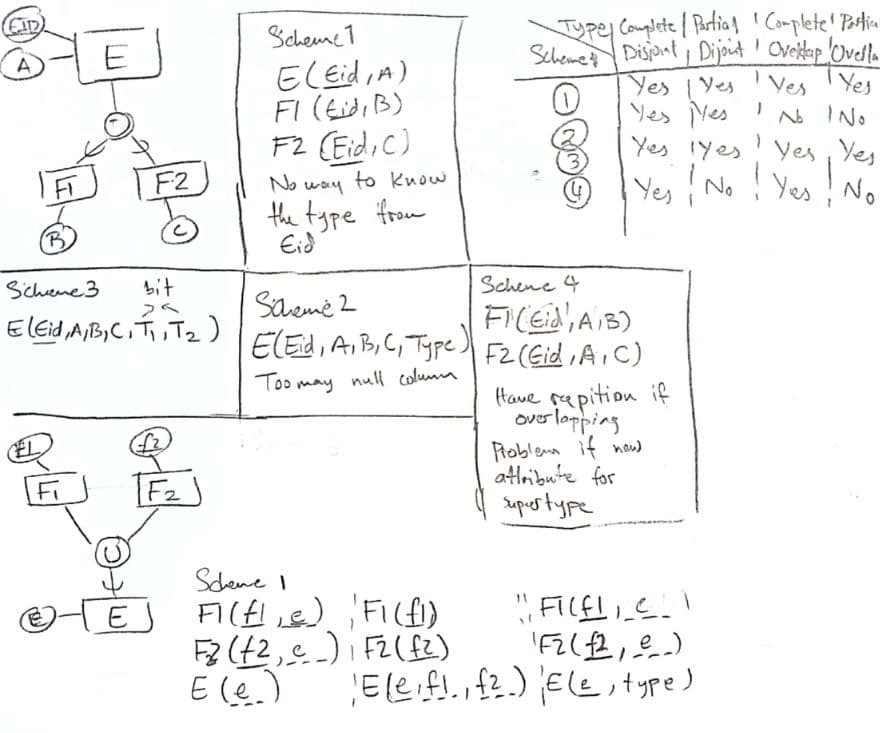 EID
A
E
F1
F2
B
C
Scheme 1
E(Eid,A)
F1(Eid,B)
F2(Eid,C)
No way to know
the type from
Eid
Type Complete Partial Complete Partia
Scheme Disjoint Dijoint Overlap Overla
① Yes Yes Yes Yes
② Yes Yes No No
③ Yes Yes Yes Yes
④ Yes No Yes No
Scheme 3 bit
E(Eid,A,B,C,T1,T2)
Scheme 2
E(Eid,A,B,C,Type)
Too may null column
Scheme 4
F1(Eid,A,B)
F2(Eid,A,C)
Have repition if
overlapping
Problem if new
attribute for
supertype
f1
f2
F1
F2
U
E
E
Scheme 1
F1(f1,e) F1(f1) F1(f1,e)
F2(f2,e) F2(f2) F2(f2,e)
E(e) E(e,f1,f2) E(e,type)